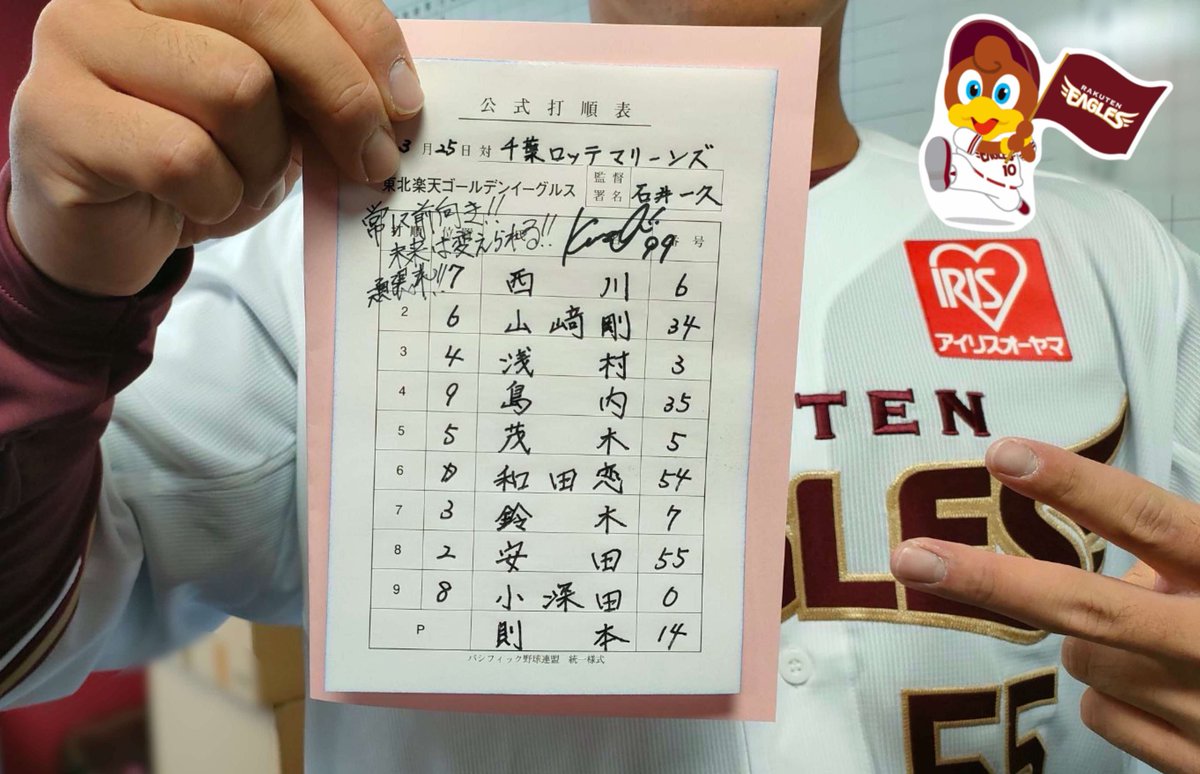 公式打順表
3月25日 対 千葉ロッテマリーンズ
東北楽天ゴールデンイーグルス 監督署名 石井一久
常に前向き!!
未来は変えられる!!
99
番号
7 西川 6
2 6 山﨑剛 34
3 4 浅村 3
4 9 島内 35
5 5 茂木 5
6 D 和田恋 54
7 3 鈴木 7
8 2 安田 55
9 8 小深田 0
P 則本 14
パシフィック野球連盟 統一様式
RAKUTEN
EAGLES
10
IRIS
アイリスオーヤマ
TEN
GLES
55